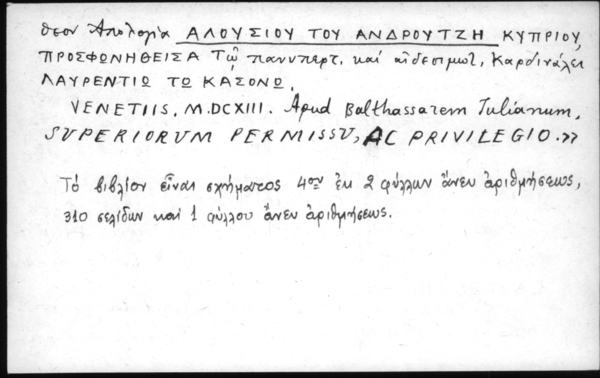 θεον Ἀπολογία ΑΛΟΥΣΙΟΥ ΤΟΥ ΑΝΔΡΟΥΤΖΗ ΚΥΠΡΙΟΥ,
ΠΡΟΣΦΩΝΗΘΕΙΣΑ Τῷ πανυπερτ. καὶ αἰδεσιμωτ. Καρδινάλει
ΛΑΥΡΕΝΤΙΩ ΤΩ ΚΑΣΟΝΩ.
VENETIIS, M.DCXIII. Apud Balthassarem Iulianum.
SUPERIORUM PERMISSU, AC PRIVILEGIO.»
Τὸ βιβλίον εἶναι σχήματος 4ον ἐκ 2 φύλλων ἄνευ ἀριθμήσεως,
310 σελίδων καὶ 1 φύλλου ἄνευ ἀριθμήσεως.